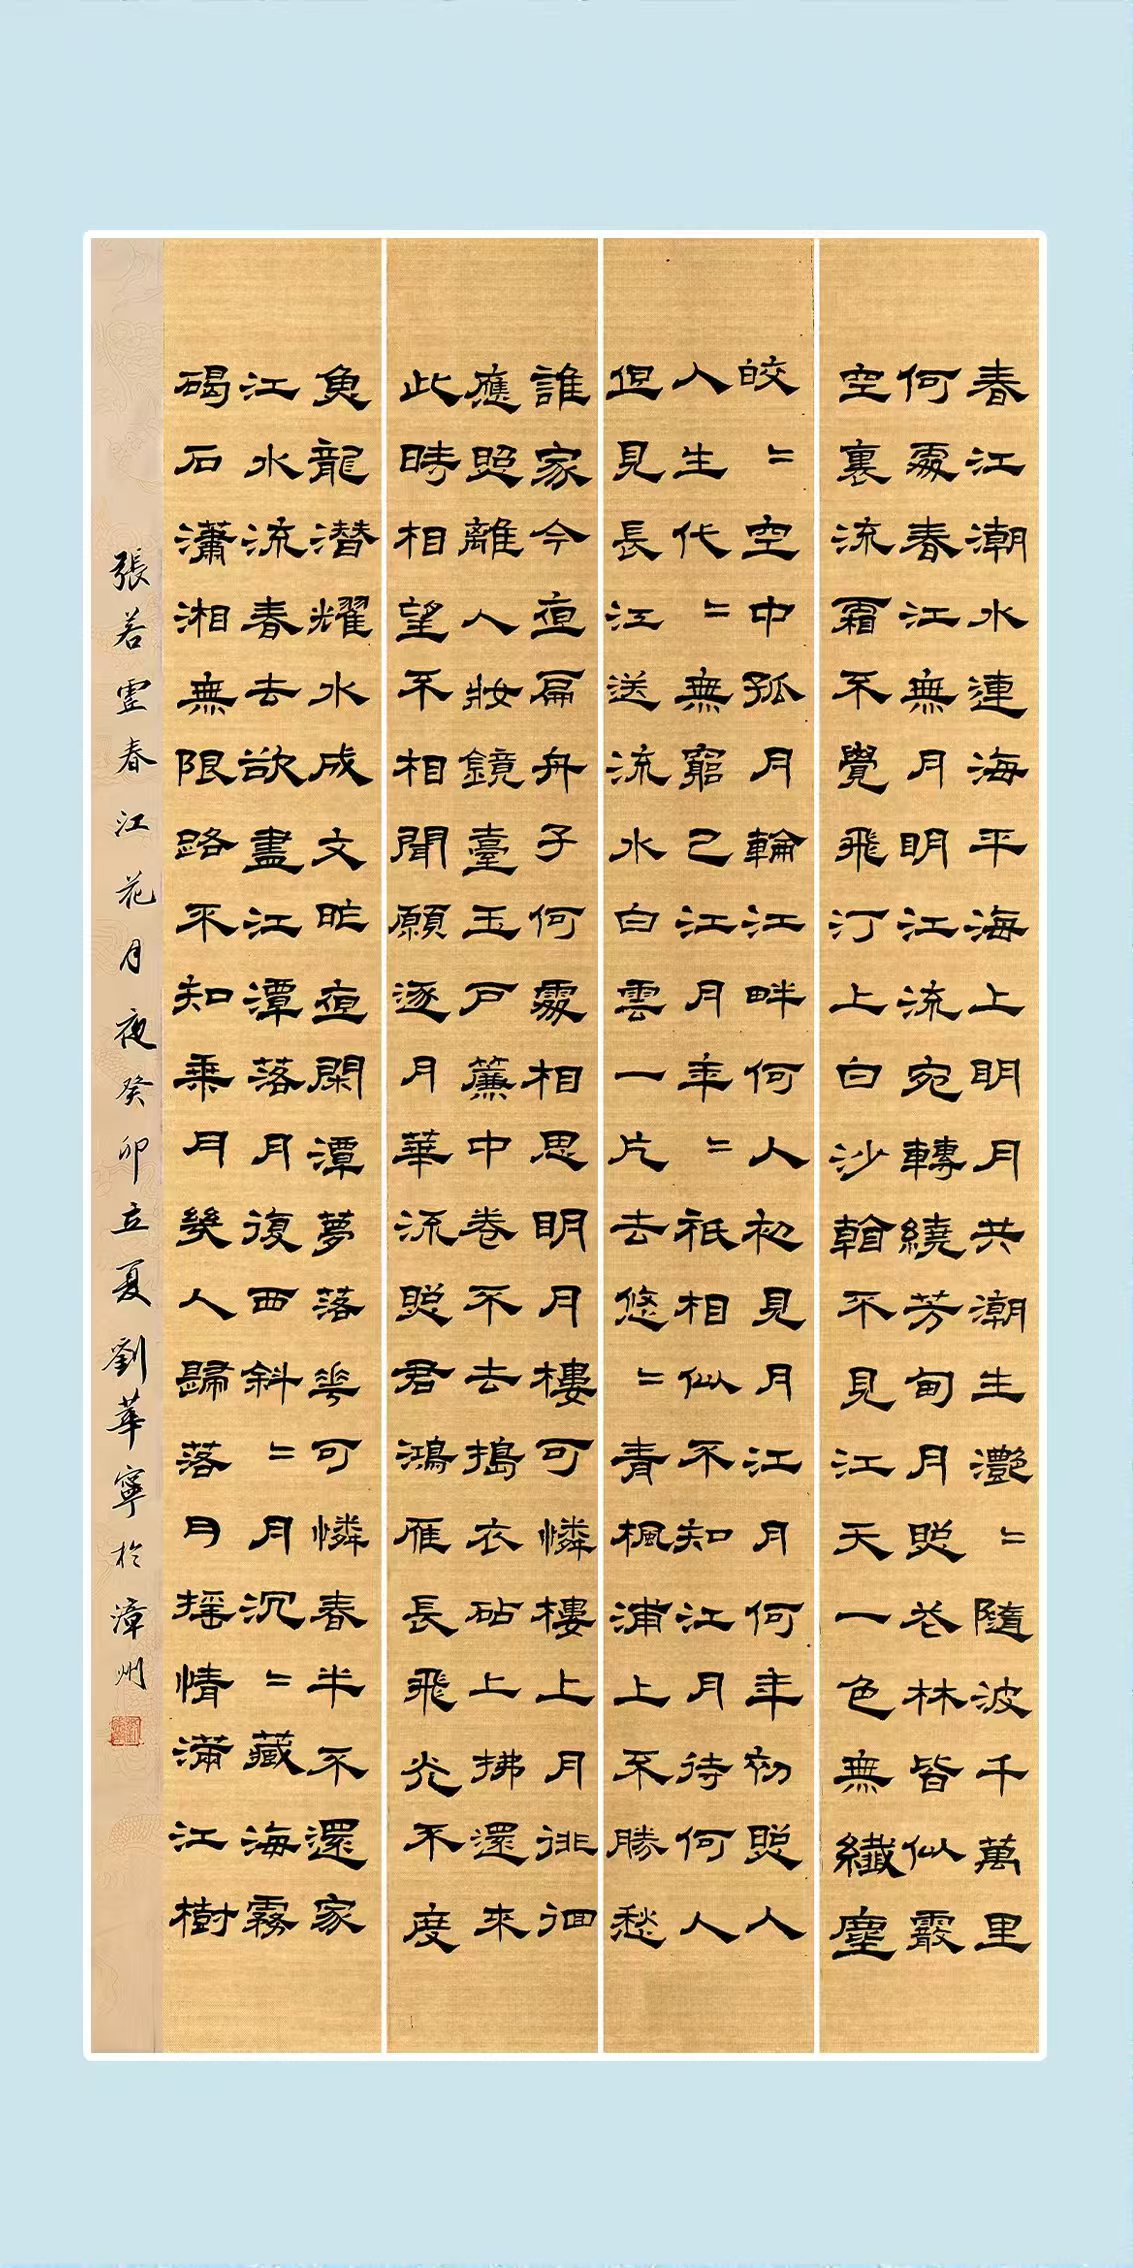 春江潮水連海平海上明月共潮生灔〻隨波千萬里
何處春江無月明江流宛轉繞芳甸月照花林皆似霰
空裏流霜不覺飛汀上白沙看不見江天一色無纖塵
皎〻空中孤月輪江畔何人初見月江月何年初照人
人生代〻無窮已江月年〻祇相似不知江月待何人
但見長江送流水白雲一片去悠〻青楓浦上不勝愁
誰家今夜扁舟子何處相思明月樓可憐樓上月徘徊
應照離人妝鏡臺玉戶簾中卷不去搗衣砧上拂還來
此時相望不相聞願逐月華流照君鴻雁長飛光不度
魚龍潛耀水成文昨夜閑潭夢落花可憐春半不還家
江水流春去欲盡江潭落月復西斜〻月沉〻藏海霧
碣石瀟湘無限路不知乘月幾人歸落月搖情滿江樹
張若虛春江花月夜癸卯立夏劉華寧於漳州